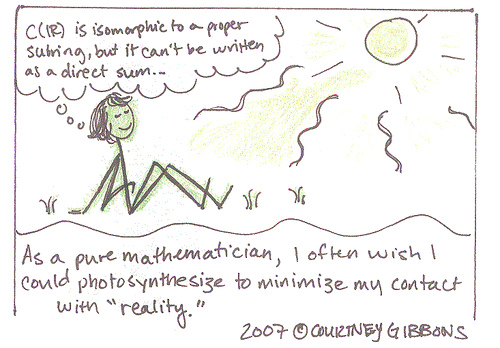 C(ℝ) is isomorphic to a proper
subring, but it can't be written
as a direct sum...
As a pure mathematician, I often wish I
could photosynthesize to minimize my contact
with "reality."
2007 © COURTNEY GIBBONS